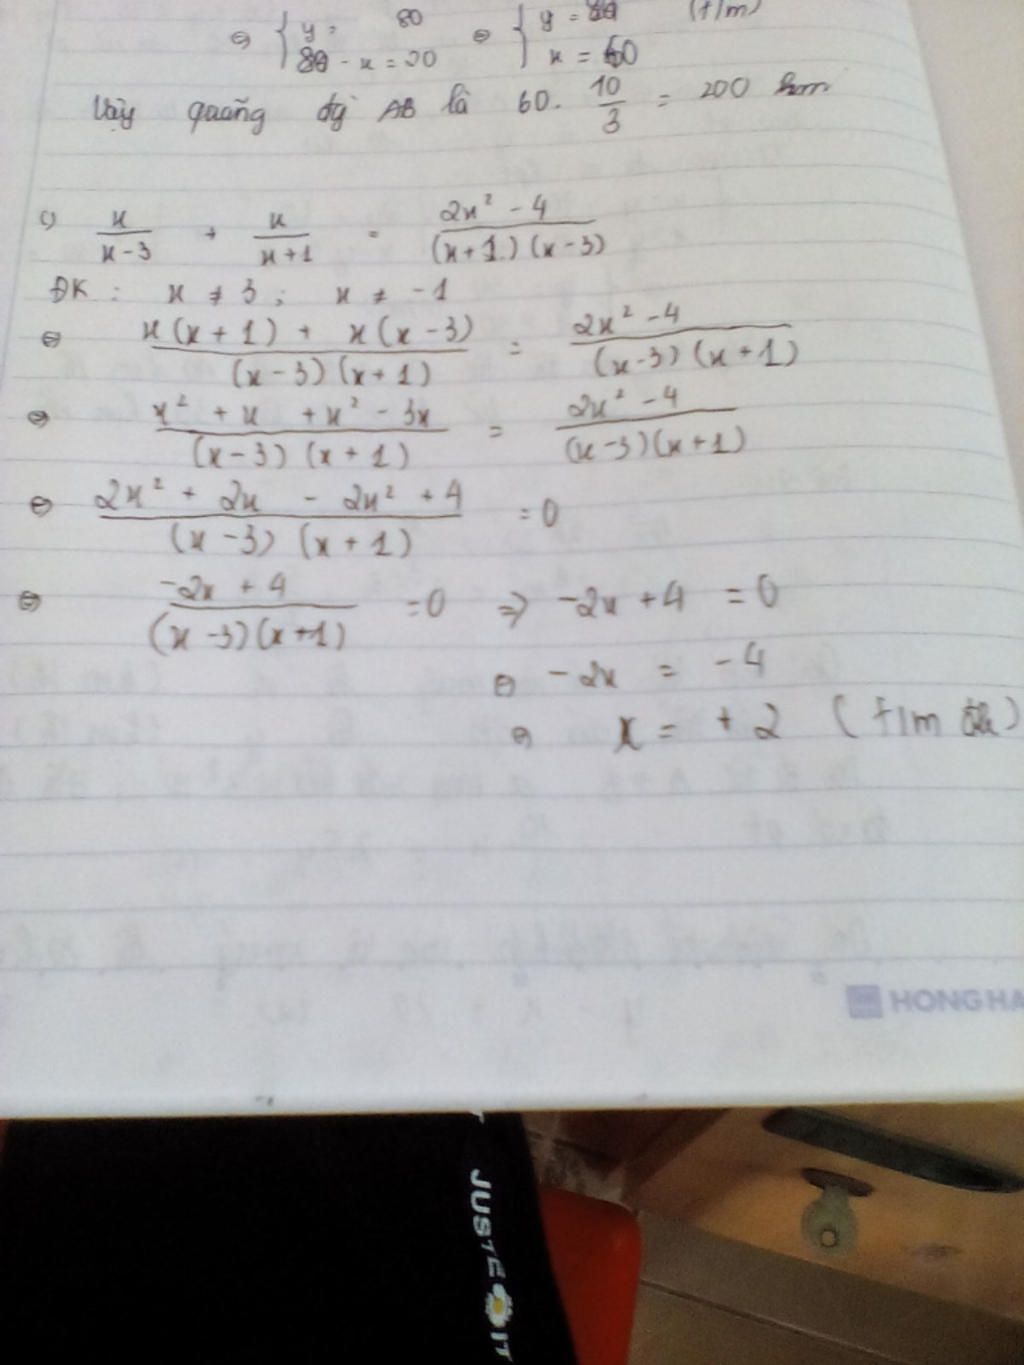 ⇔ { y = 80 ⇔ { y = 80 (t/m)
80 - x = 20 x = 60
Vậy quãng đg AB là 60. 10/3 = 200 km
c) x/(x-3) + x/(x+1) = (2x² - 4)/((x+1)(x-3))
ĐK : x ≠ 3 ; x ≠ -1
⇔ (x(x+1) + x(x-3))/((x-3)(x+1)) = (2x² - 4)/((x-3)(x+1))
⇔ (x² + x + x² - 3x)/((x-3)(x+1)) = (2x² - 4)/((x-3)(x+1))
⇔ (2x² + 2x - 2x² + 4)/((x-3)(x+1)) = 0
⇔ (-2x + 4)/((x-3)(x+1)) = 0 ⇒ -2x + 4 = 0
⇔ -2x = -4
⇔ x = +2 (t/m đk)
HONG HA
JUSTE IT